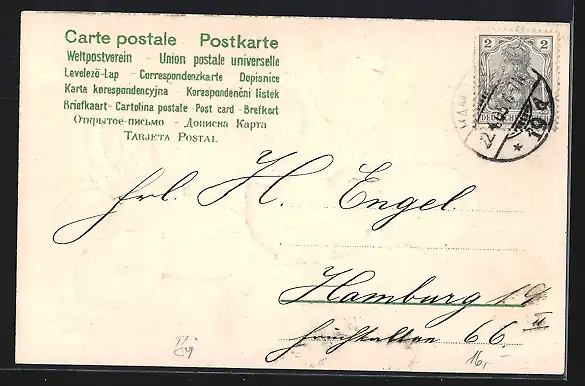 Carte postale Postkarte
Weltpostverein - Union postale universelle
Levelező-Lap - Correspondenzkarte Dopisnice
Karta korespondencyjna Korespondenční listek
Briefkaart - Cartolina postale - Post card - Brefkort
Открытое-письмо - Дописна Карта
Tarjeta Postal
2 2
DEUTSCHES REICH
Frl. H. Engel
Hamburg 19
II
66.
16,-